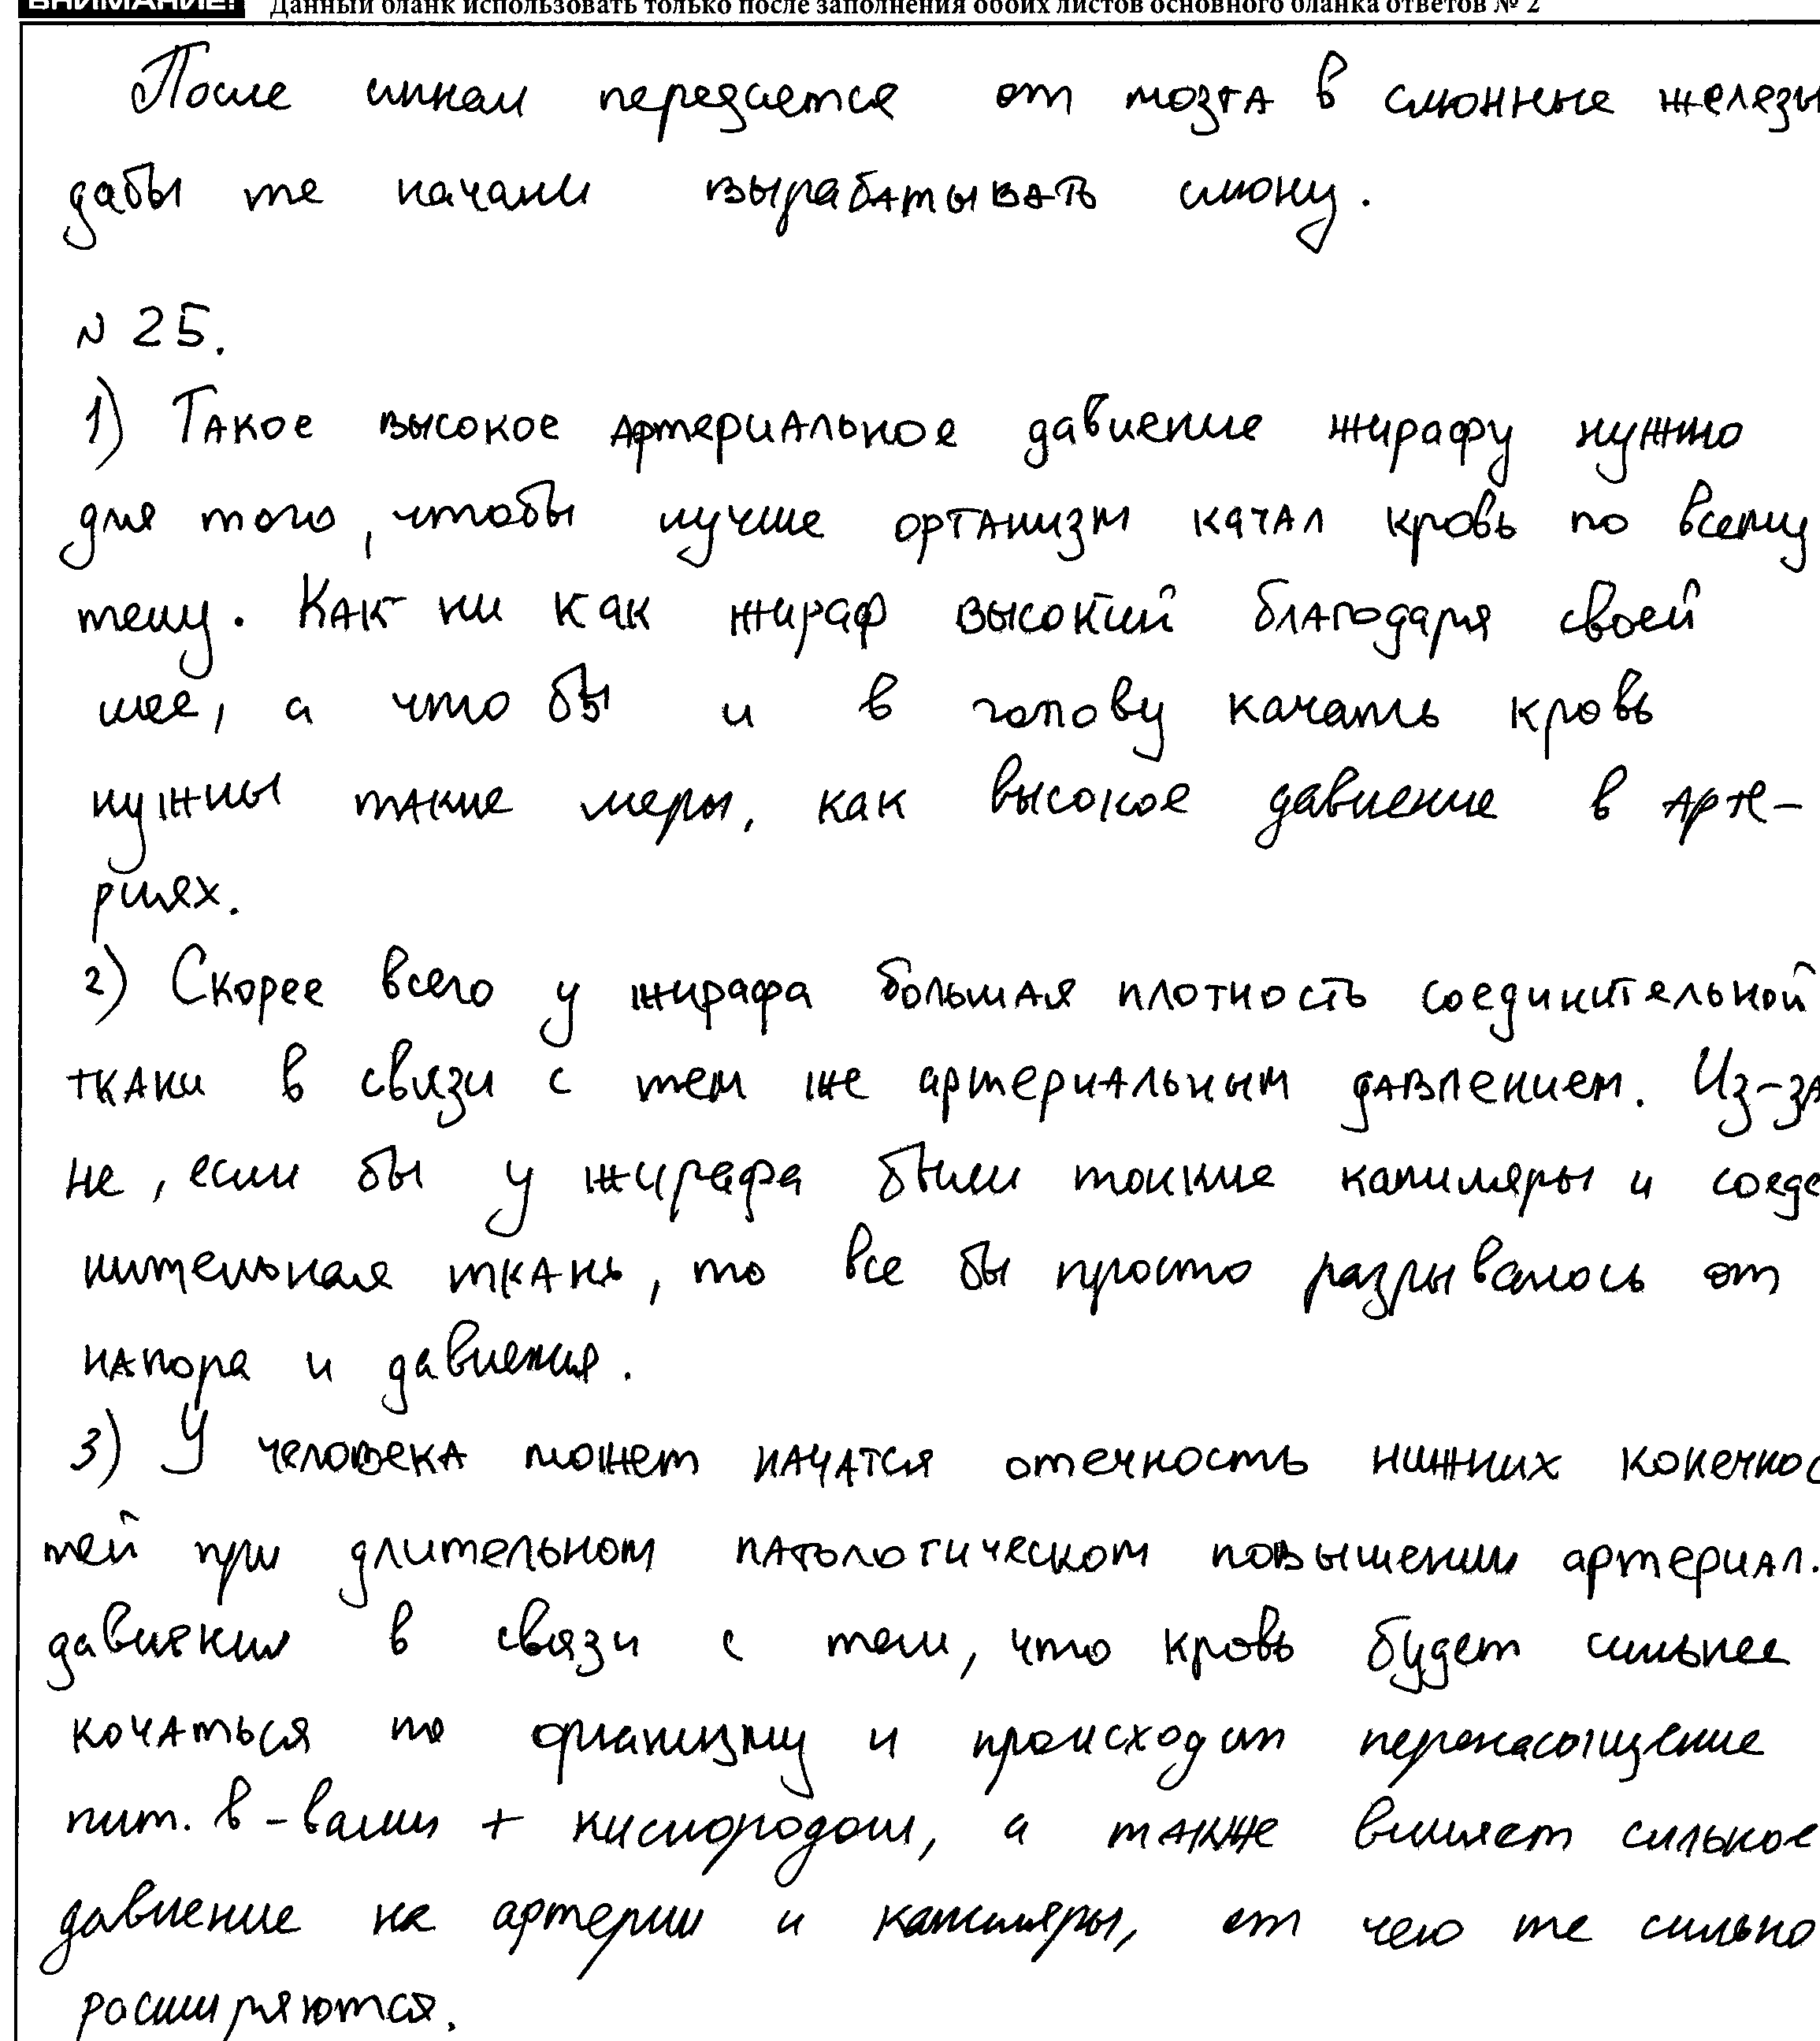 ВНИМАНИЕ! Данный бланк использовать только после заполнения обоих листов основного бланка ответов № 2
После сигнал передается от мозга в слюнные железы
дабы те начали вырабатывать слюну.
№ 25.
1) Такое высокое артериальное давление жирафу нужно
для того, чтобы лучше организм качал кровь по всему
телу. Как ни как жираф высокий благодаря своей
шее, а что бы и в голову качать кровь
нужны такие меры, как высокое давление в арте-
риях.
2) Скорее всего у жирафа большая плотность соединительной
ткани в связи с тем же артериальным давлением. Из-за
не, если бы у жирафа были тонкие капиляры и соеде
нительная ткань, то все бы просто разрывалось от
напора и давления.
3) У человека может начатся отечность нижних конечнос
тей при длительном патологическом повышении артериал.
давления в связи с тем, что кровь будет сильнее
кочаться по организму и происходит перенасыщение
пит. в-вами + кислородом, а также влияет сильное
давление на артерии и капиляры, от чего те сильно
расширяются.